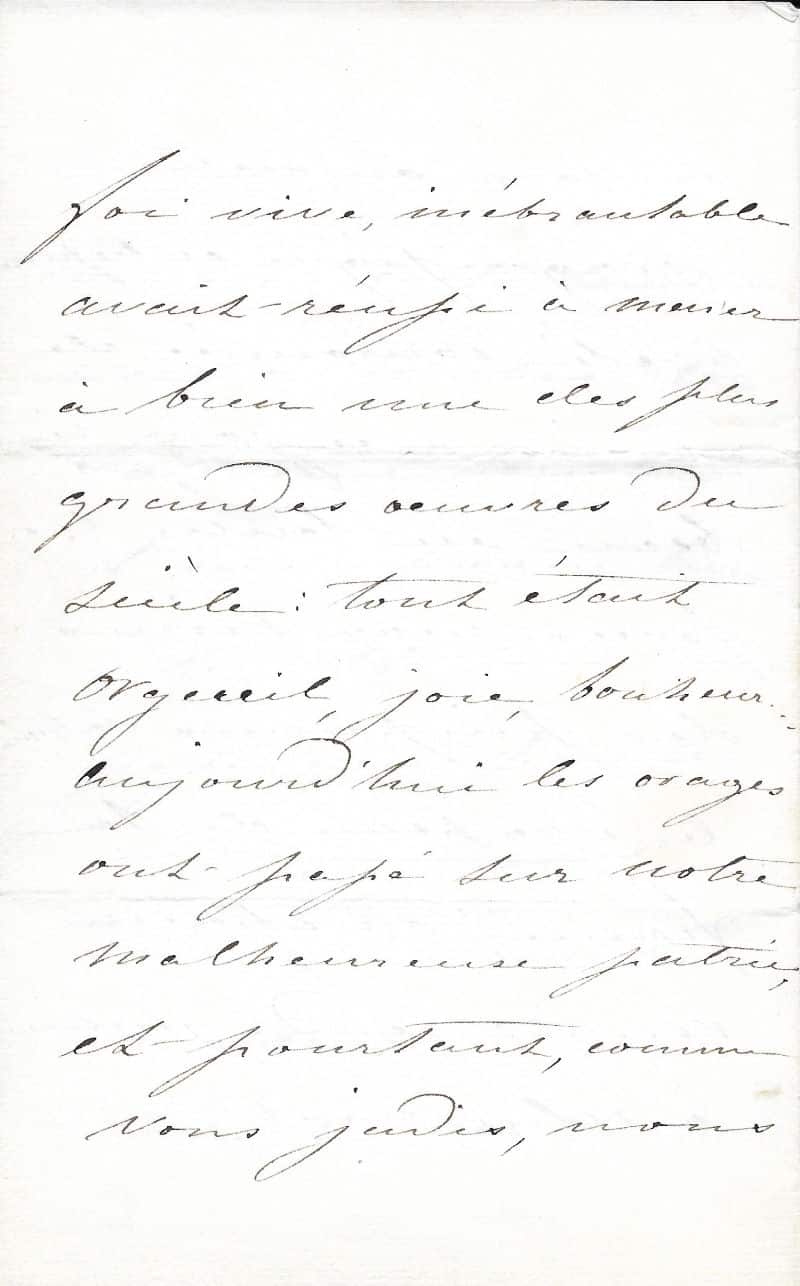 foi vive, inébranlable
avait réussi à mener
à bien une des plus
grandes œuvres du
siècle : tout était
orgueil, joie, bonheur...
aujourd'hui les orages
ont passé sur notre
malheureuse patrie,
et pourtant, comme
vous jadis, nous